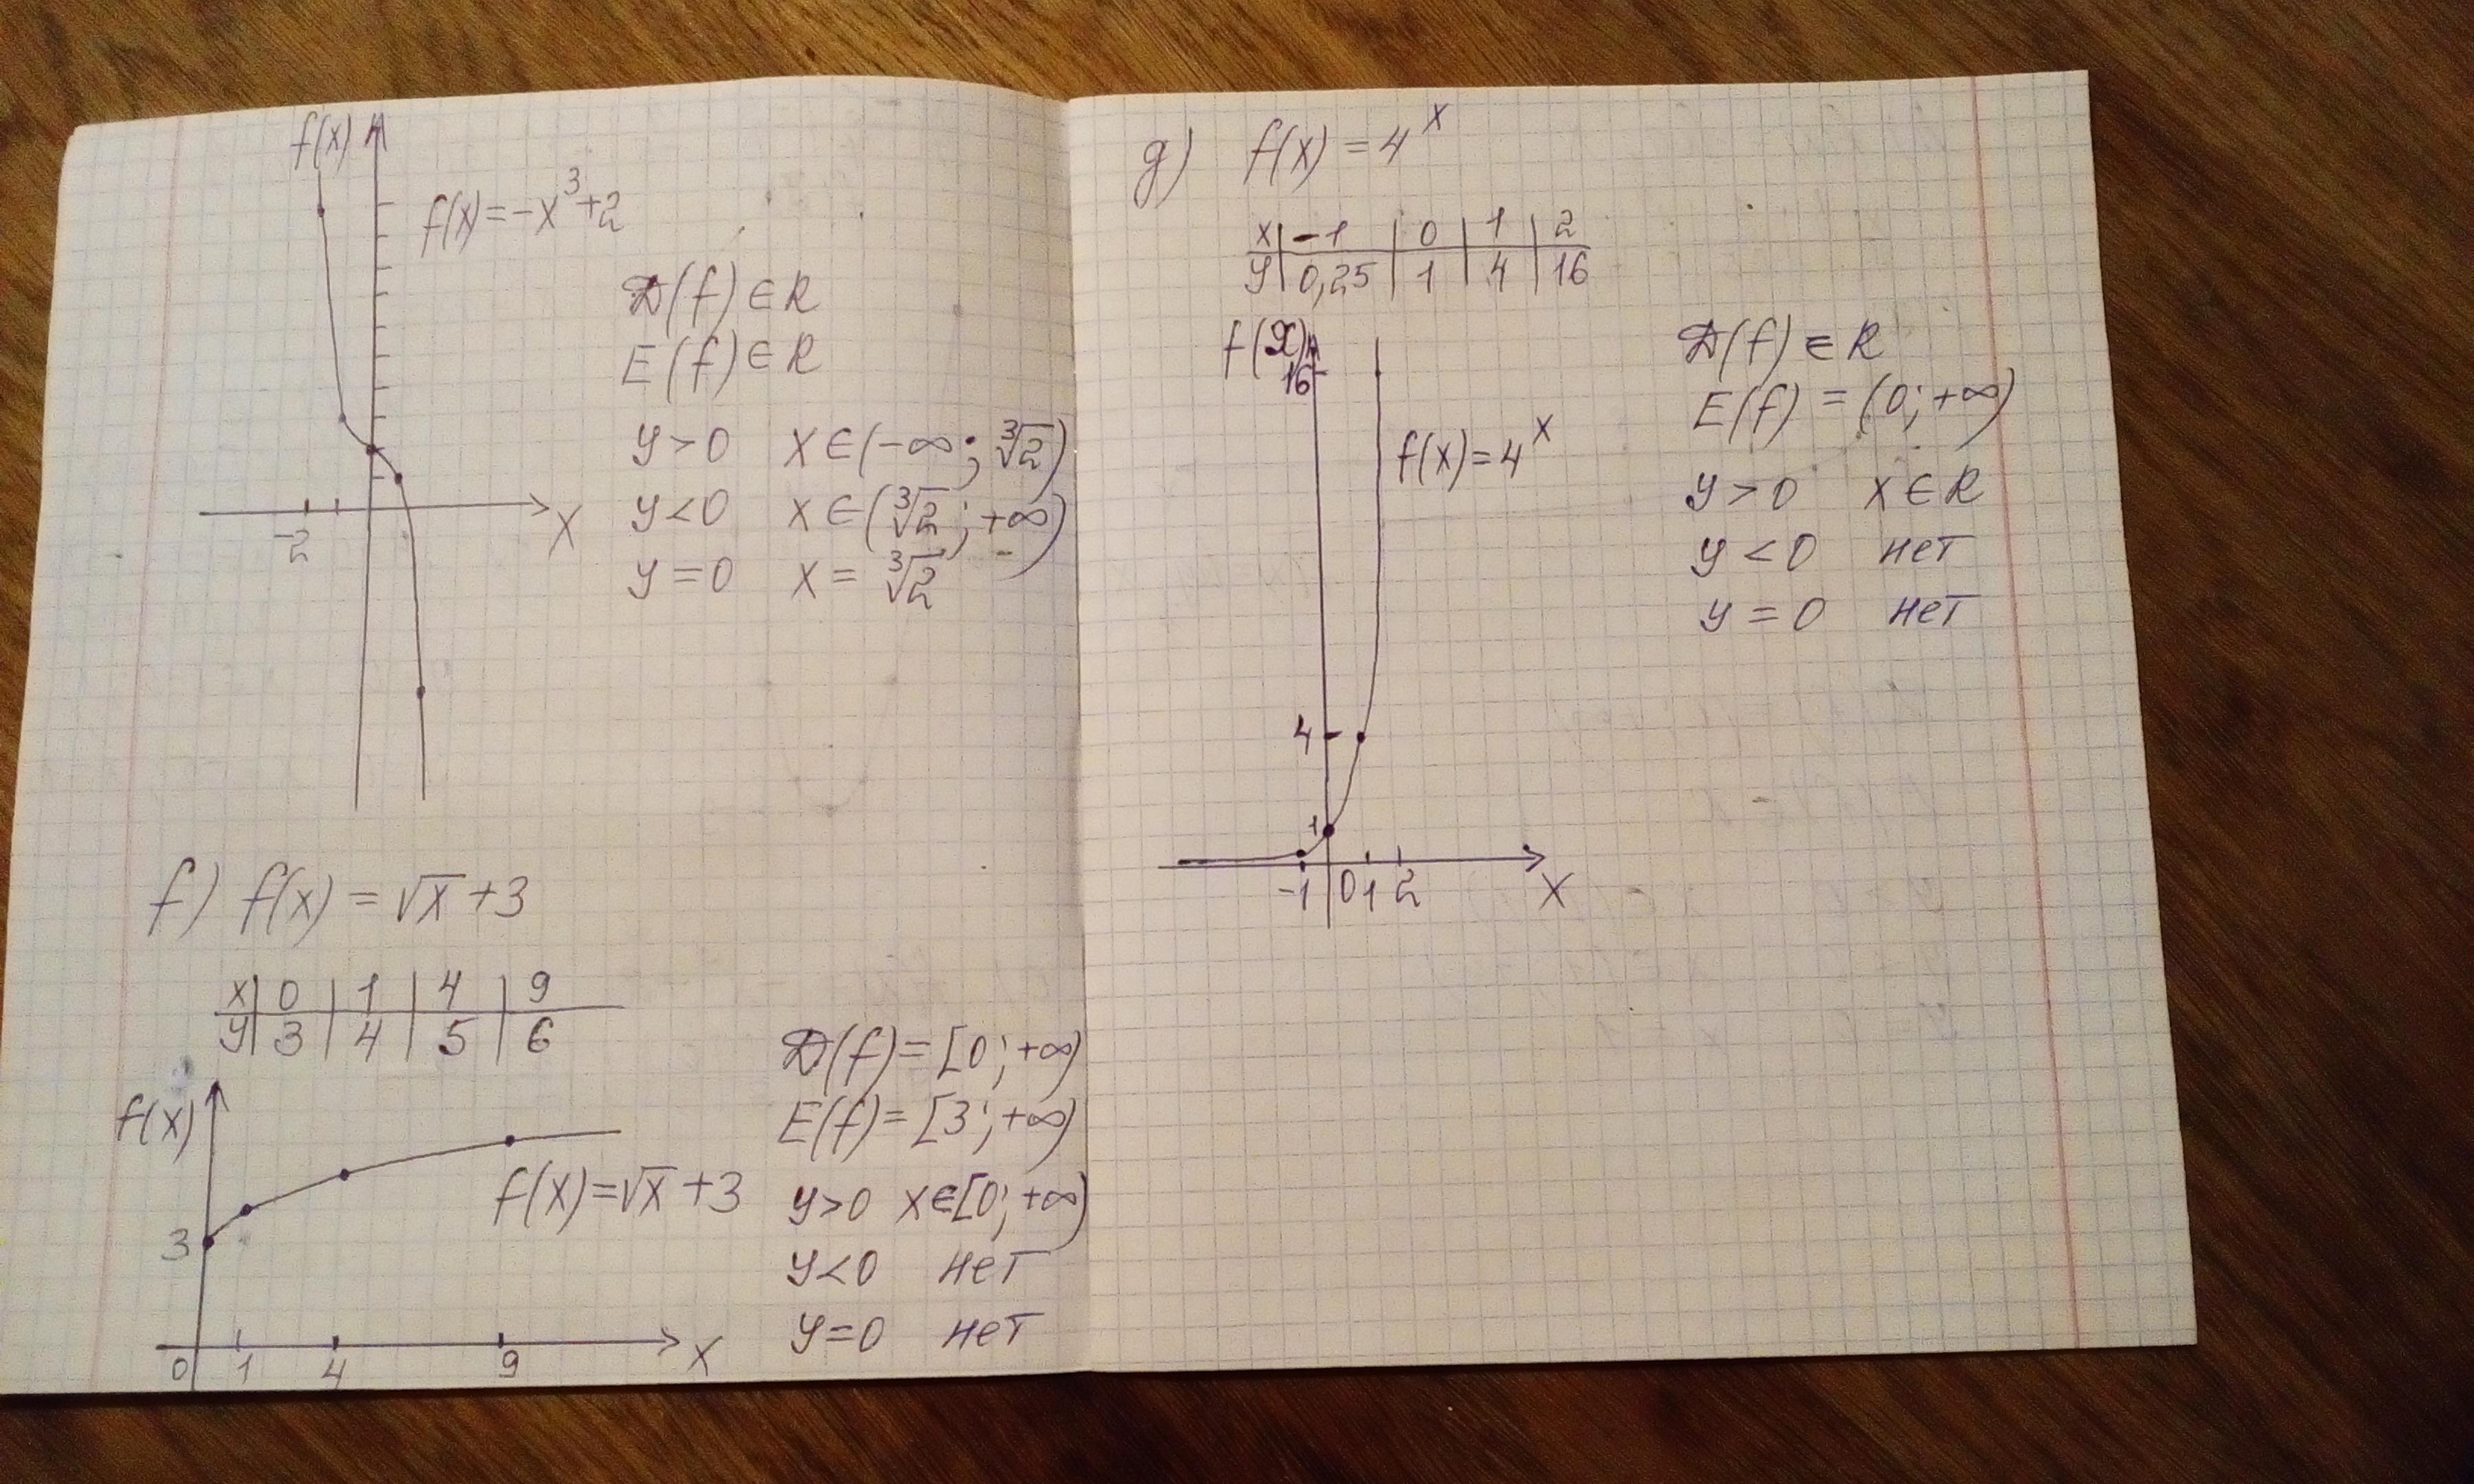 f(x)
f(x)=-x³+2
D(f)∈R
E(f)∈R
y>0 x∈(-∞; ∛2)
y<0 x∈(∛2; +∞)
y=0 x=∛2
-2 x
f) f(x)=√x+3
x 0 1 4 9
y 3 4 5 6
f(x)
f(x)=√x+3
3
0 1 4 9 x
D(f)=[0; +∞)
E(f)=[3; +∞)
y>0 x∈[0; +∞)
y<0 нет
y=0 нет
g) f(x)=4ˣ
x -1 0 1 2
y 0,25 1 4 16
f(x)
16
f(x)=4ˣ
4
1
-1 0 1 2 x
D(f)∈R
E(f)=(0; +∞)
y>0 x∈R
y<0 нет
y=0 нет